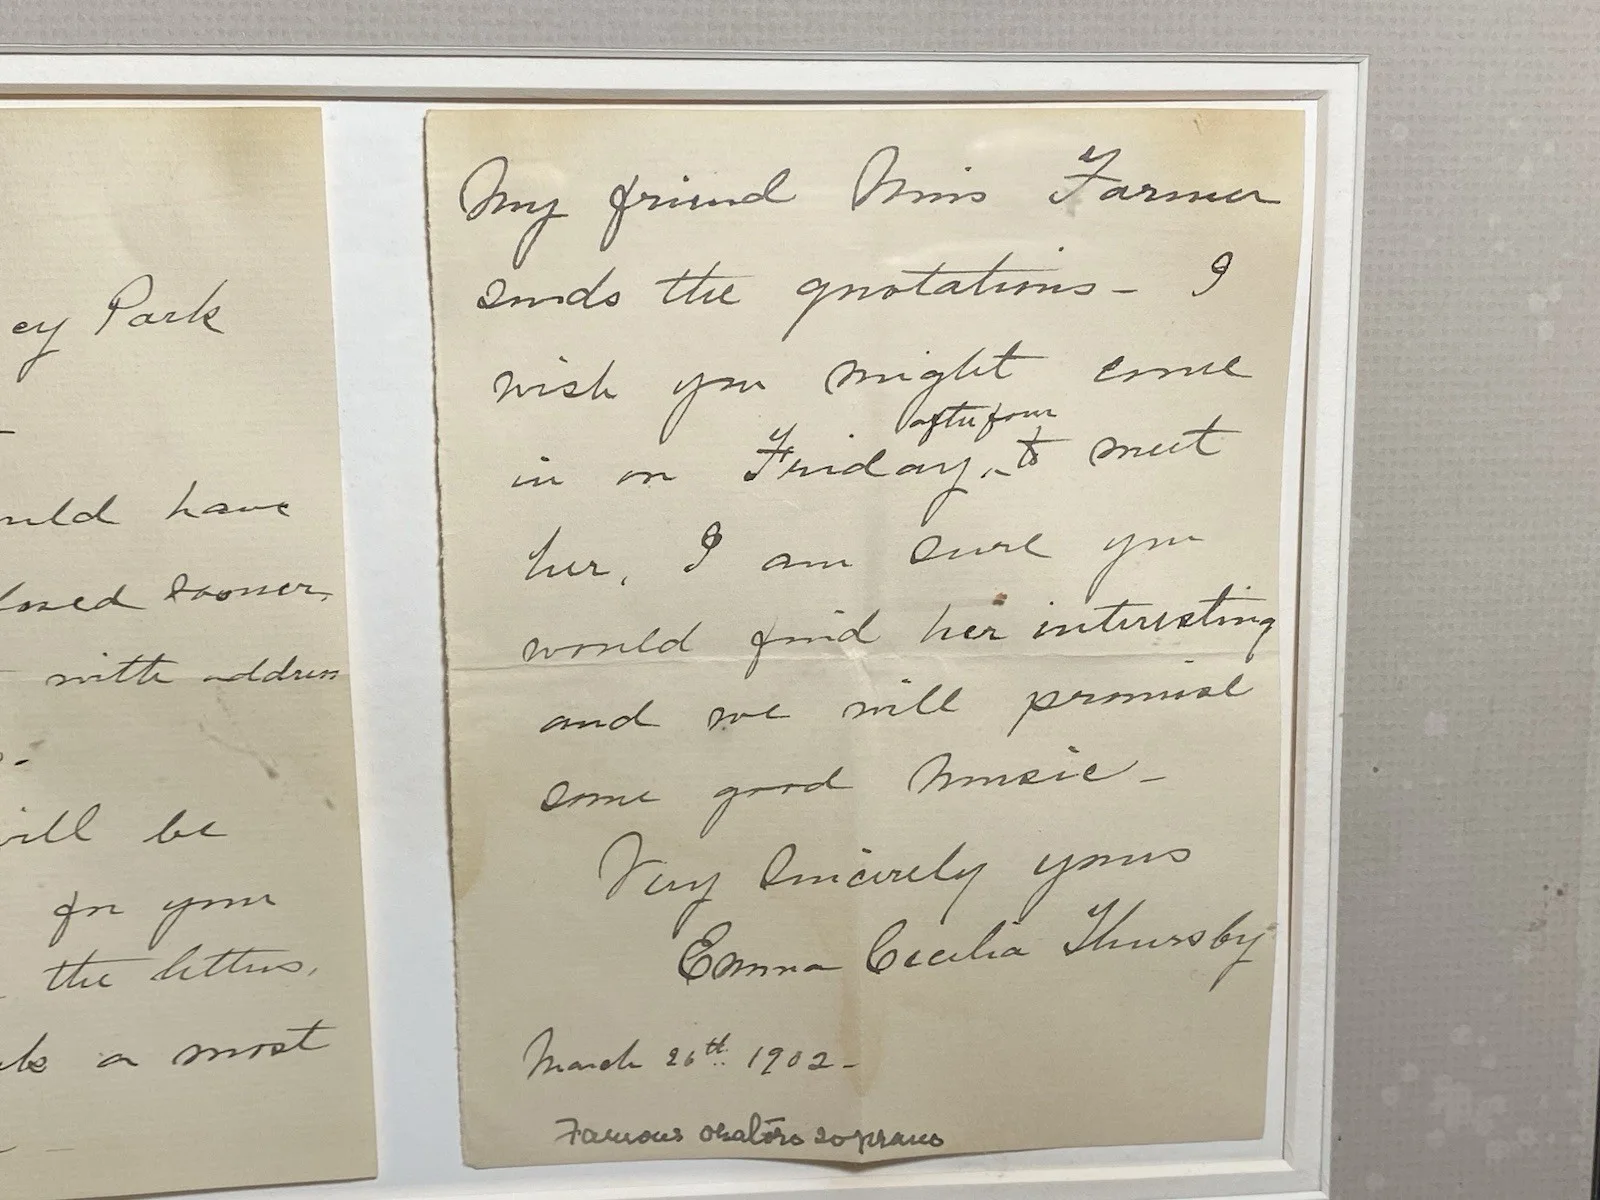 ey Park
have
sooner,
with address
will be
for your
the letters,
a most
My friend Miss Farmer
sends the quotations - I
wish you might come
after four
in on Friday, to meet
her, I am sure you
would find her interesting
and we will promise
some good music -
Very Sincerely yours
Emma Cecilia Thursby
March 26th 1902 -
Famous oratorio soprano